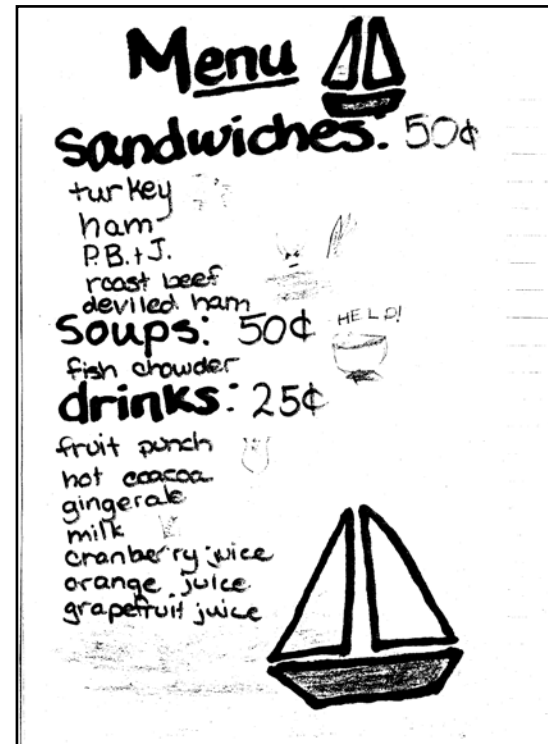 Menu
sandwiches: 50¢
turkey
ham
P.B.+J.
roast beef
deviled ham
Soups: 50¢
HELP!
fish chowder
drinks: 25¢
fruit punch
hot coacoa
gingerale
milk
cranberry juice
orange juice
grapefruit juice